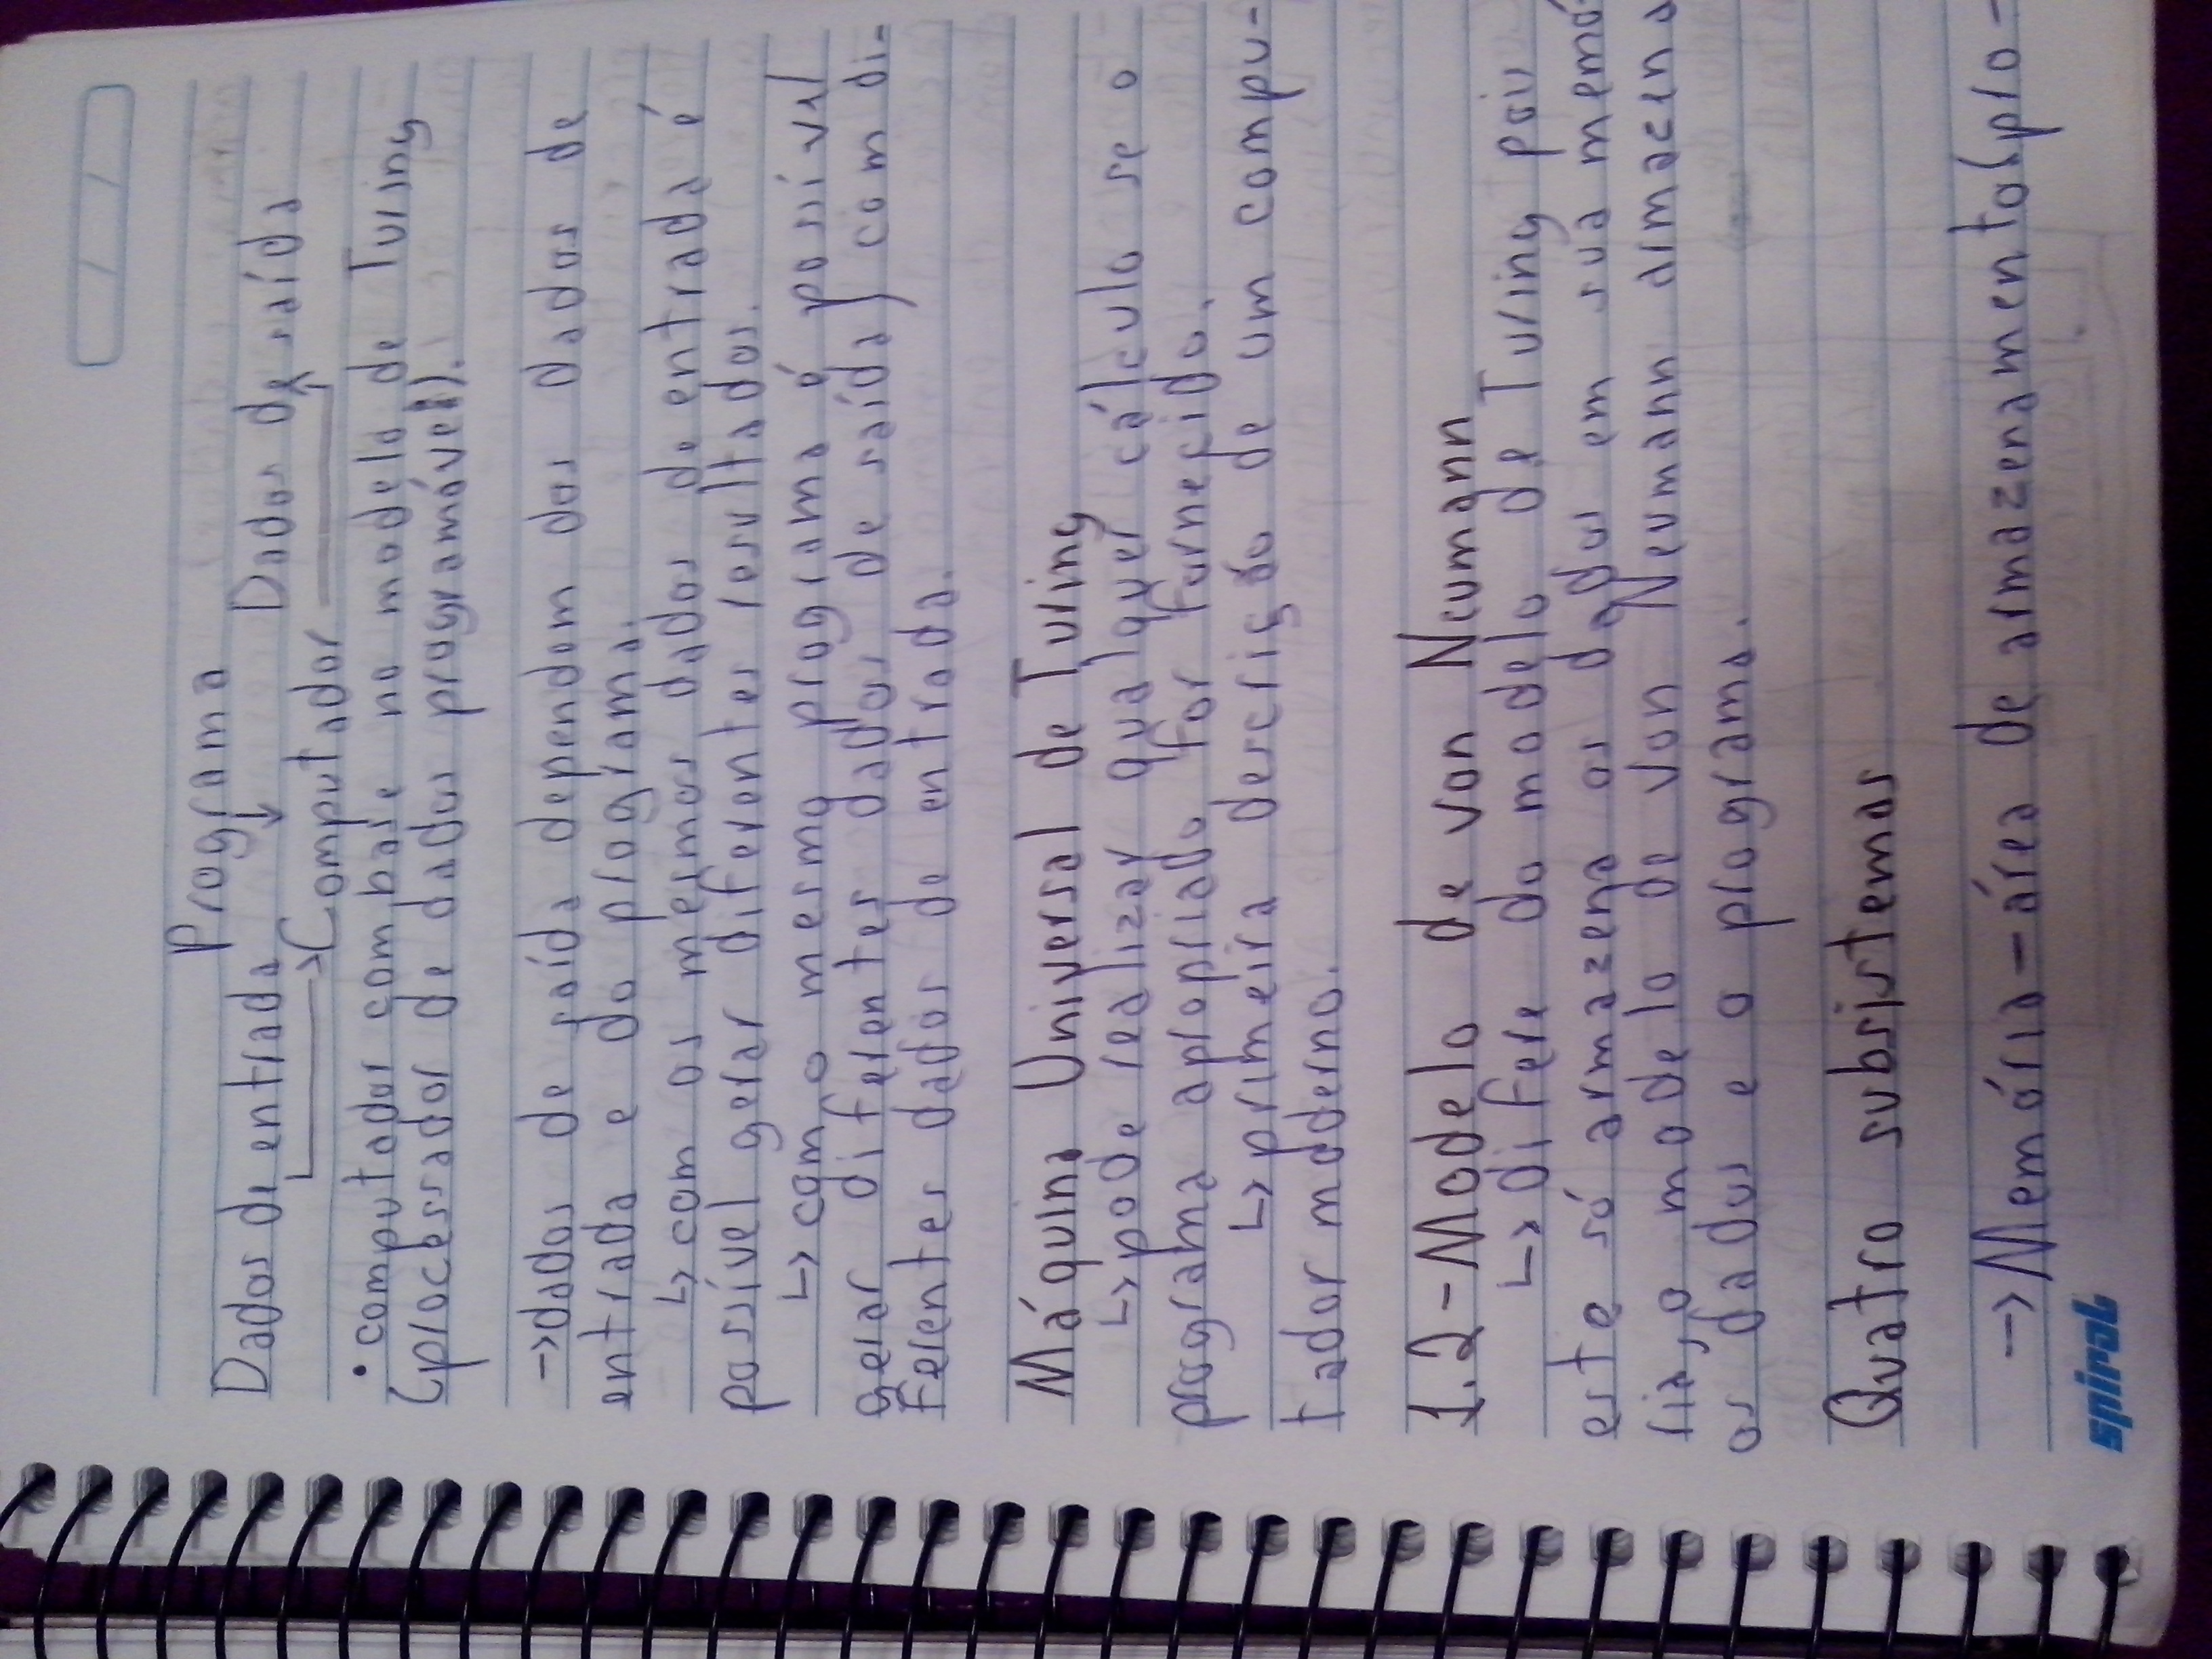 Programa
Dados de entrada ↓ Dados de saída
Computador
• computador com base no modelo de Turing
(processador de dados programável).
→ dados de saída dependem dos dados de
entrada e do programa.
↳ com os mesmos dados de entrada é
possível gerar diferentes resultados.
↳ com o mesmo programa é possível
gerar diferentes dados de saída, com di-
ferentes dados de entrada.
Máquina Universal de Turing
↳ pode realizar qualquer cálculo se o
programa apropriado for fornecido.
↳ primeira descrição de um compu-
tador moderno.
1.2 - Modelo de von Neumann
↳ difere do modelo de Turing pois
este só armazena os dados em sua memó-
ria, o modelo de von Neumann armazena
os dados e o programa.
Quatro subsistemas
→ Memória - área de armazenamento (pro-
spiral